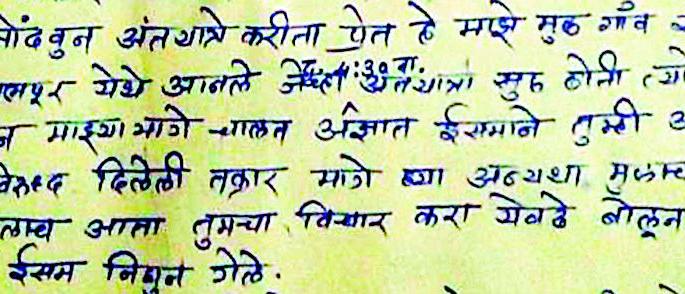 नोंदवुन अंतयात्रे करीता प्रेत हे माझे मुळ गाँव
येथे आनले जेव्हा दु. 4:30 वा. अंतयात्रा सुरु होती त्या
माझ्या मागे चालत अज्ञात ईसमाने तुम्ही
विरुध्द दिलेली तक्रार मागे घ्या अन्यथा
आता तुमचा विचार करा येवढे बोलून
ईसम निघुन गेले.